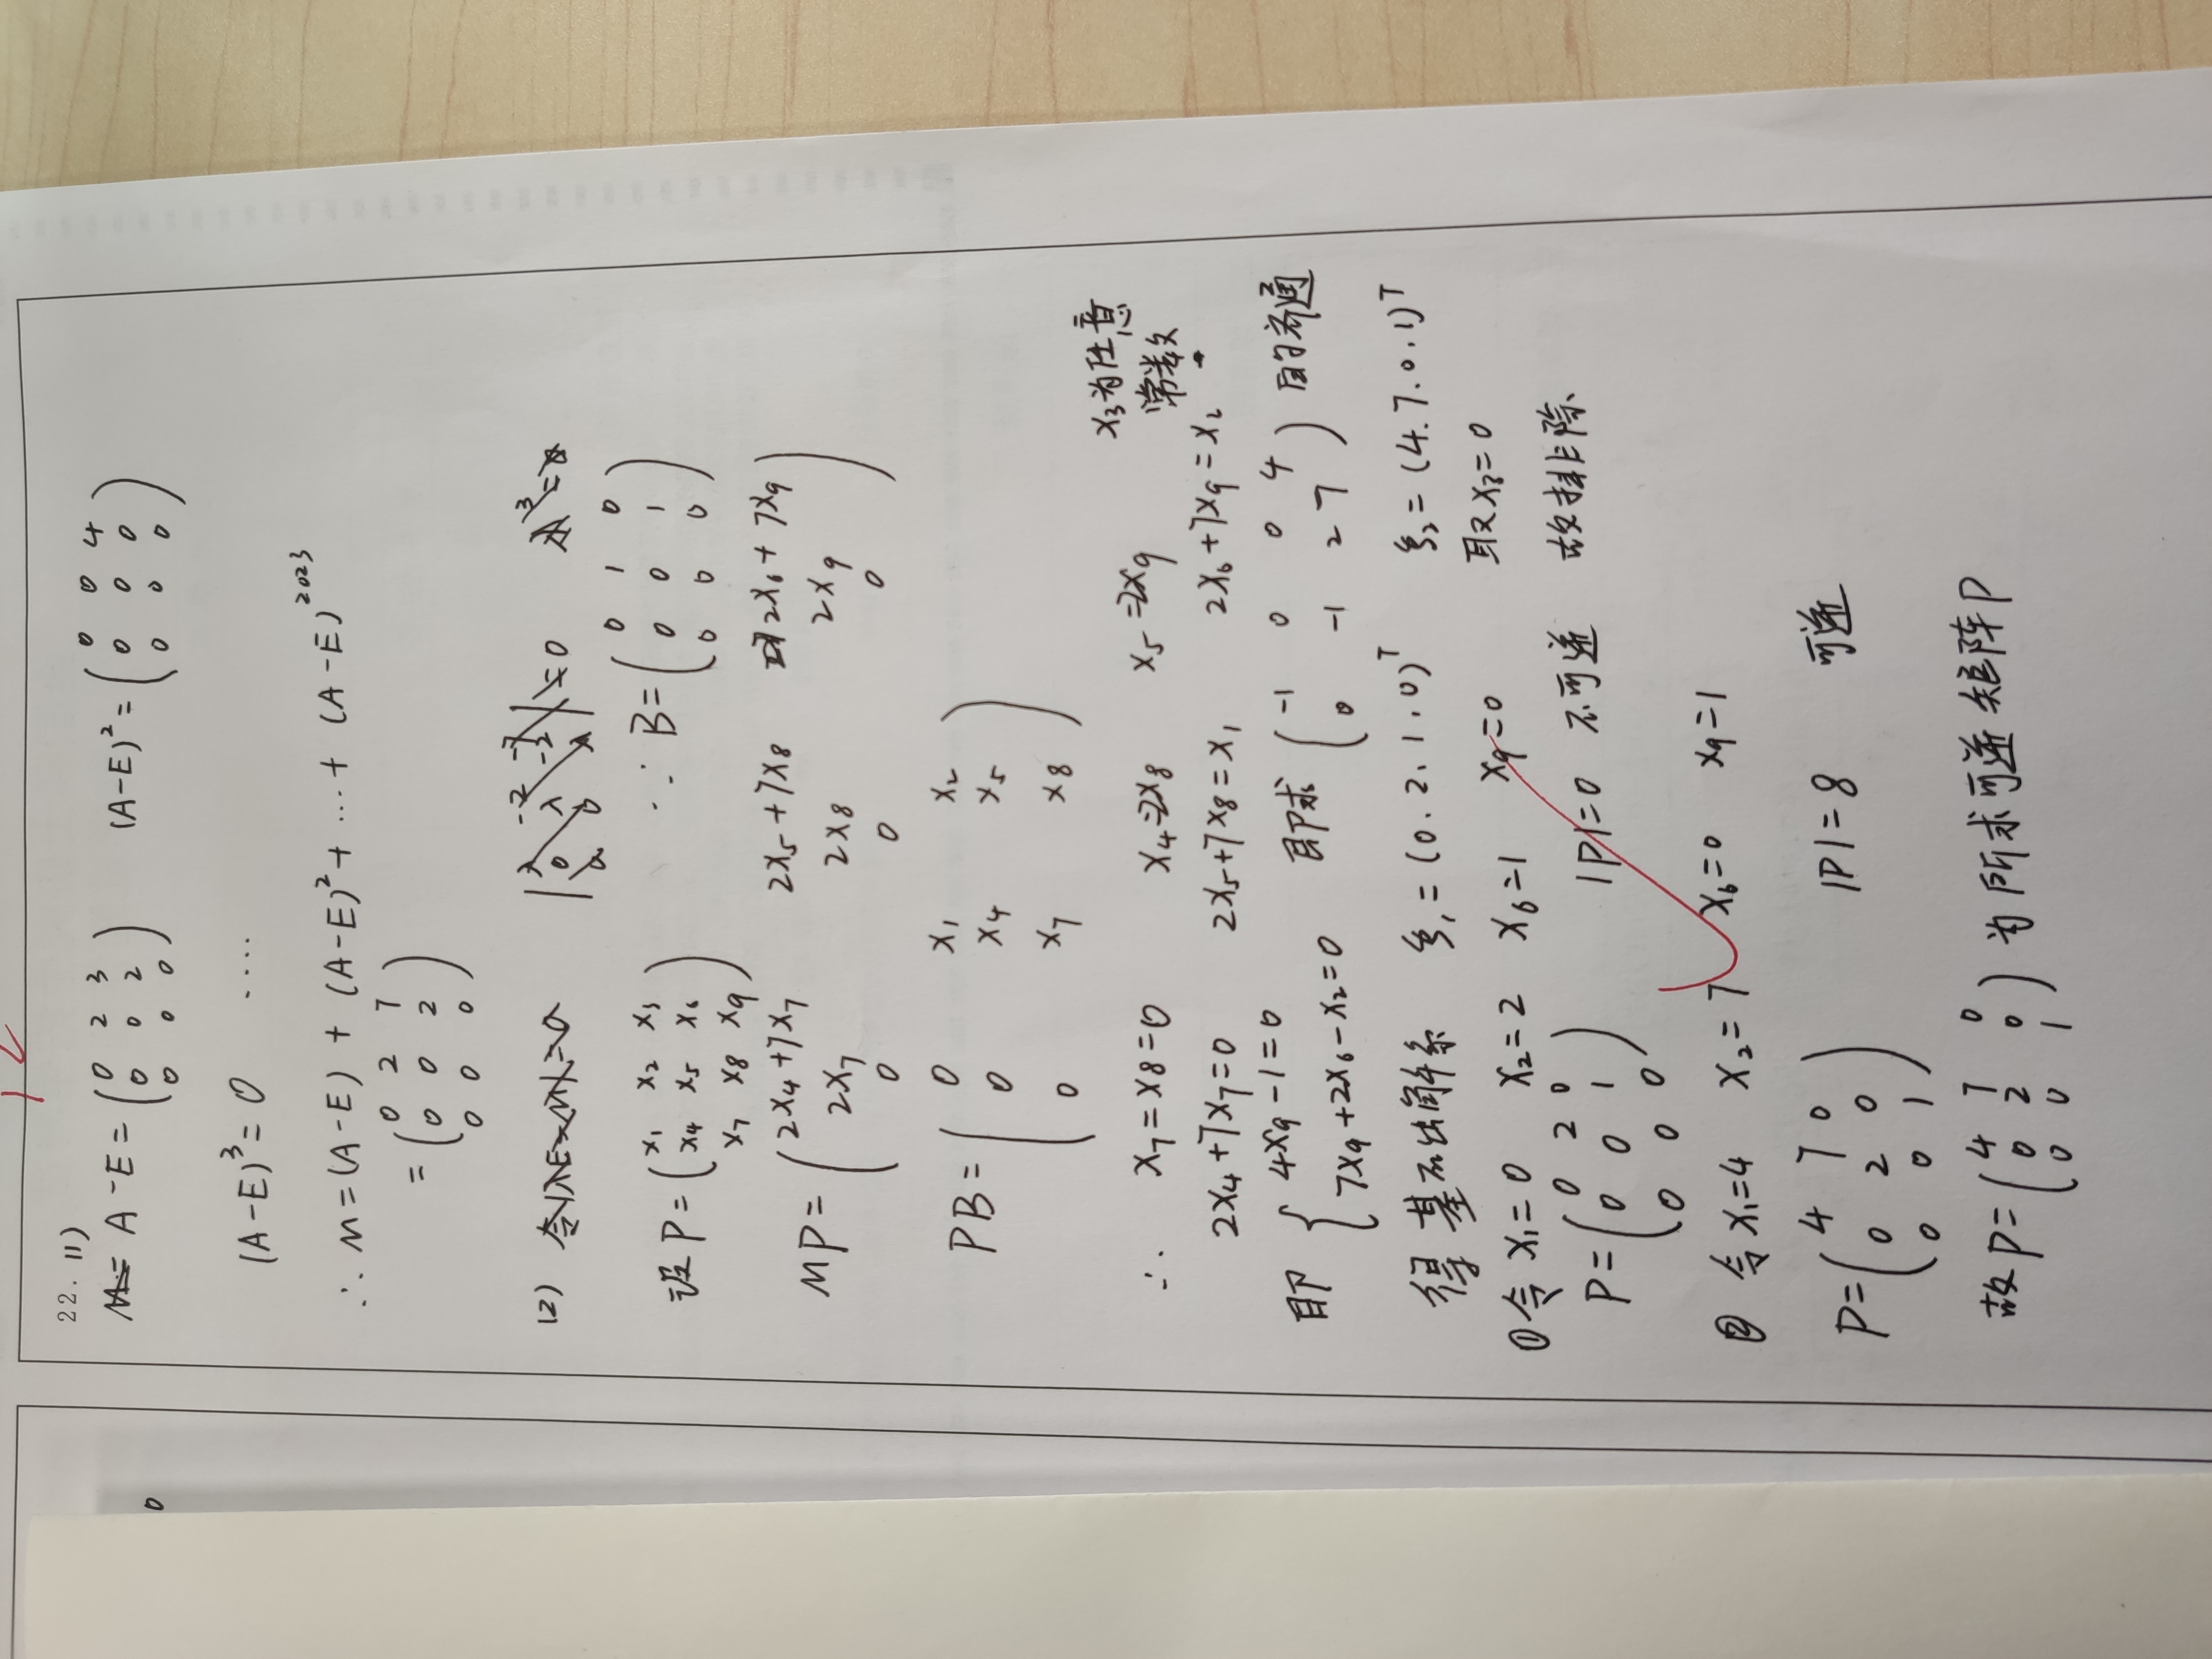 22. (1)
A-E=(0 2 3 (A-E)²=(0 0 4
0 0 2 0 0 0
0 0 0) 0 0 0)
(A-E)³=0 ....
∴ M=(A-E)+(A-E)²+...+(A-E)²⁰²³
=(0 2 7
0 0 2
0 0 0)
(2) ∵ B=(0 1 0
0 0 1
0 0 0)
设P=(x₁ x₂ x₃
x₄ x₅ x₆
x₇ x₈ x₉)
MP=(2x₄+7x₇ 2x₅+7x₈ 2x₆+7x₉
2x₇ 2x₈ 2x₉
0 0 0)
PB=(0 x₁ x₂
0 x₄ x₅
0 x₇ x₈)
∴ x₇=x₈=0 x₄=2x₈ x₅=2x₉ x₃为任意常数
2x₄+7x₇=0 2x₅+7x₈=x₁ 2x₆+7x₉=x₂
即 { 4x₉-1=0
7x₉+2x₆-x₂=0 即求 (-1 0 0 4
0 -1 2 7) 的
得基础解系 ξ₁=(0.2.1.0)ᵀ ξ₂=(4.7.0.1)ᵀ
①令x₁=0 x₂=2 x₆=1 x₉=0 取x₃=0
P=(0 2 0
0 0 1
0 0 0) |P|=0 不可逆 故排除
② 令x₁=4 x₂=7 x₆=0 x₉=1
P=(4 7 0
0 2 0
0 0 1) |P|=8 可逆
故P=(4 7 0
0 2 0
0 0 1) 为所求可逆矩阵P
0